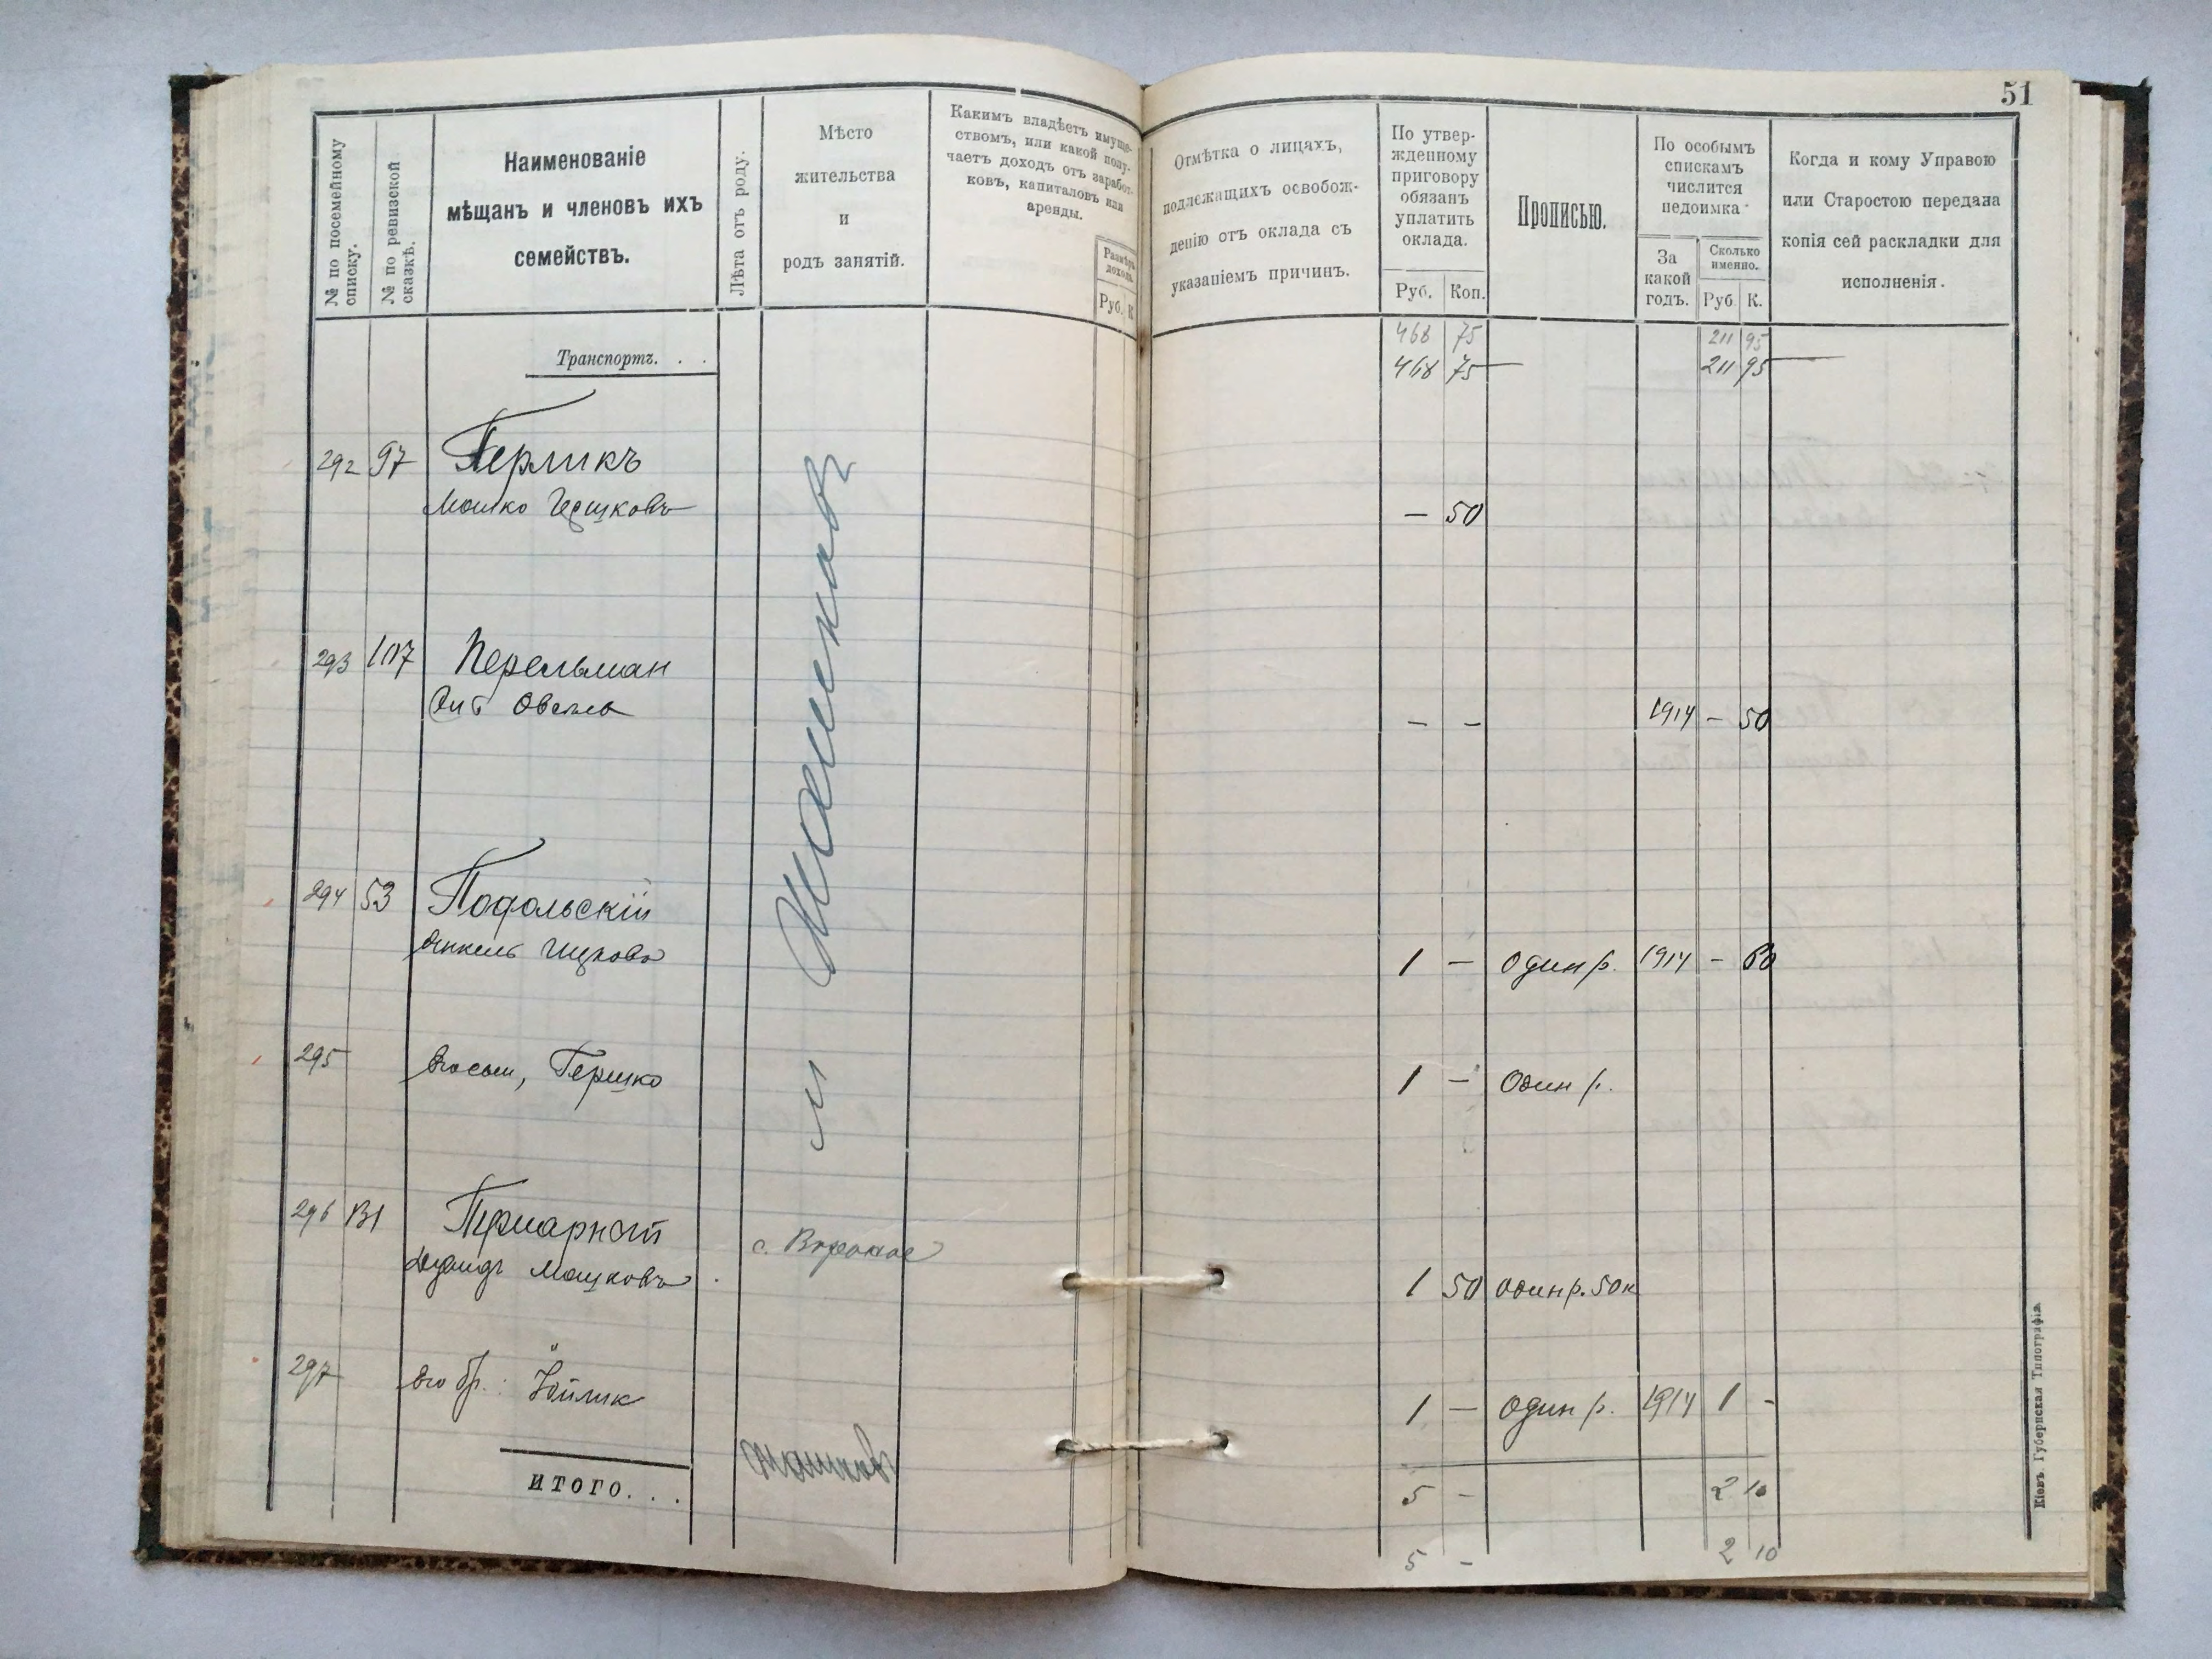 51
№ по посемейному списку.
№ по ревизской сказкѣ.
Наименованіе
мѣщанъ и членовъ ихъ
семействъ.
Лѣта отъ роду.
Мѣсто
жительства
и
родъ занятій.
Какимъ владѣетъ имуще-
ствомъ, или какой полу-
чаетъ доходъ отъ заработ-
ковъ, капиталовъ или
аренды.
Размѣръ
дохода.
Руб. К
Отмѣтка о лицахъ,
подлежащихъ освобож-
денію отъ оклада съ
указаніемъ причинъ.
По утвер-
жденному
приговору
обязанъ
уплатить
оклада.
Руб. Коп.
Прописью.
По особымъ
спискамъ
числится
недоимка
За
какой
годъ.
Сколько
именно.
Руб. К.
Когда и кому Управою
или Старостою передана
копія сей раскладки для
исполненія.
468 75 211 95
Транспортъ. . . 468 75 211 95
292 97 Герликъ
Мошко — 50
293 107 Перельман
— — 1914 — 50
294 53 Подольскій
Янкель Ицковъ 1 — Один р. 1914 — 60
295 Его сын, Гершко 1 — Один р.
м Жашковъ
296 131
Мошковъ 1 50 Один р. 50 к
297 Его бр. : 1 — Один р. 1914 1 -
Жашков
ИТОГО. . . 5 - 2 10
5 - 2 10
Кіевъ. Губернская Типографія.